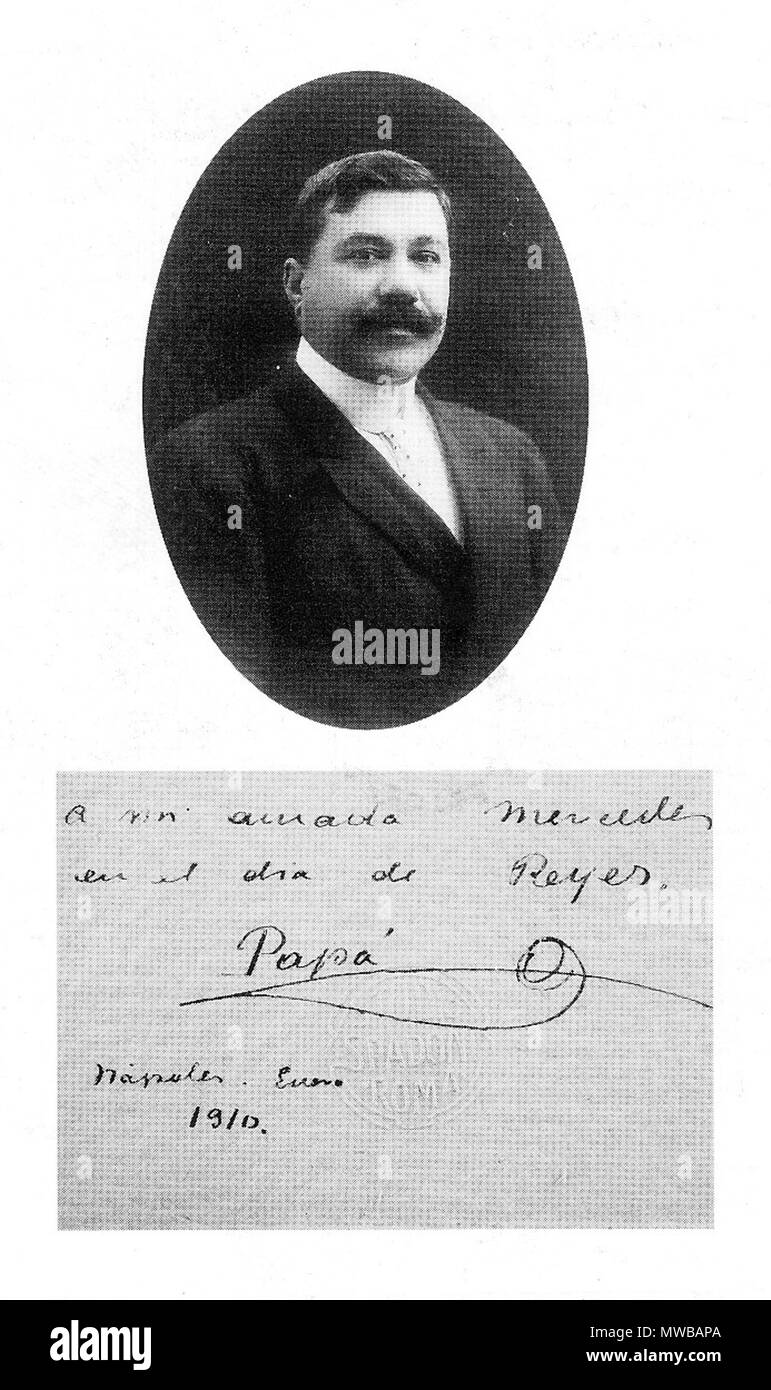 A mi amada Mercedes
en el dia de Reyes.
Papá
Nápoles. Enero
1910.
alamy
Image ID: MWBAPA
www.alamy.com